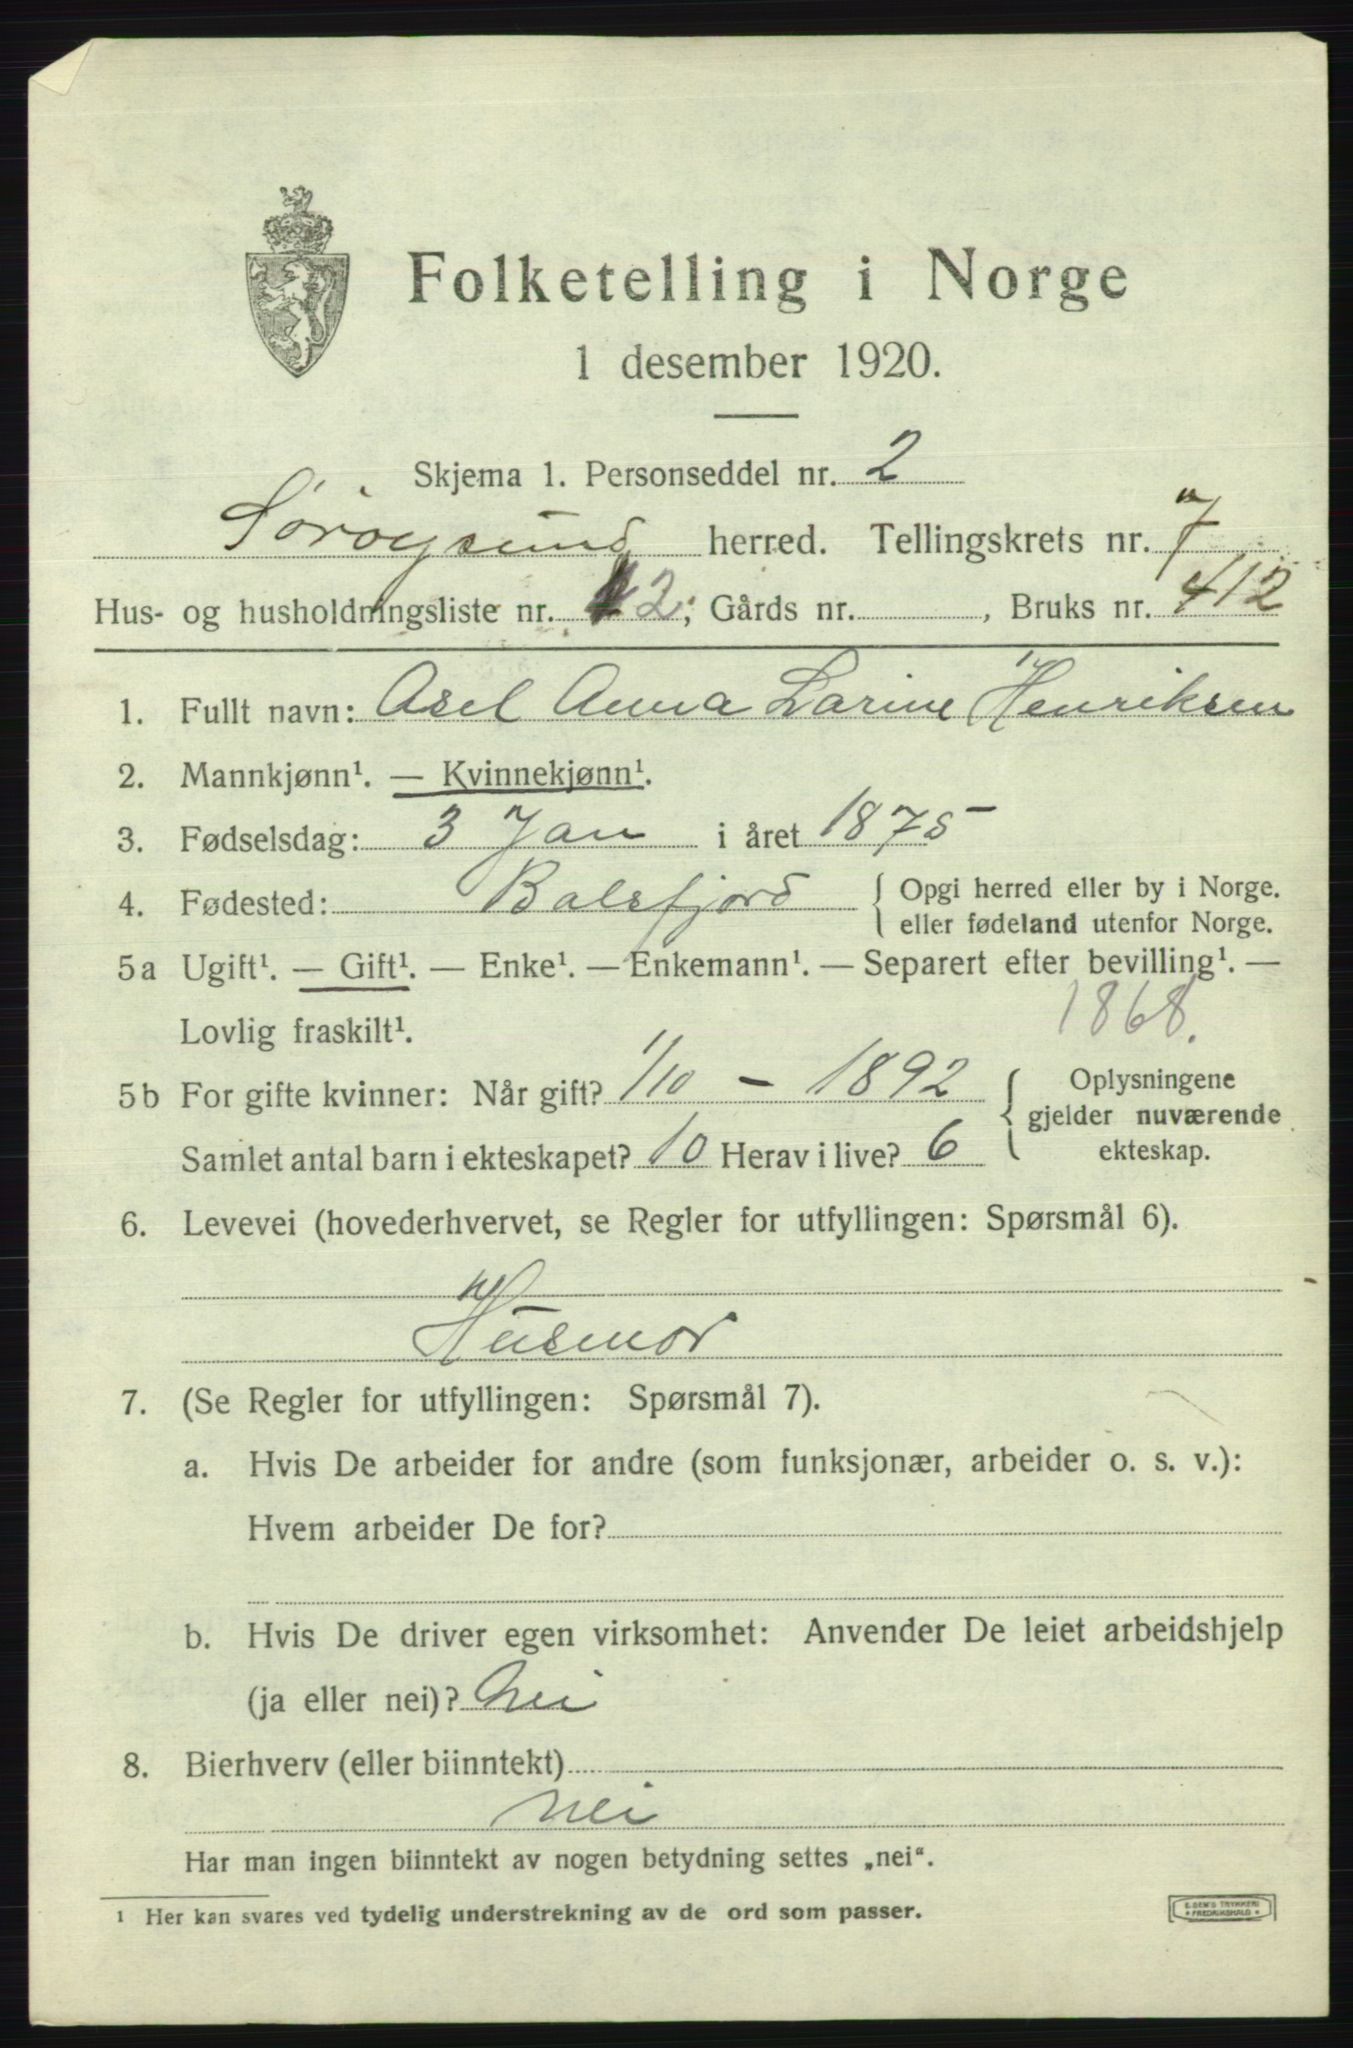 Folketelling i Norge
1 desember 1920.
Skjema 1. Personseddel nr. 2
Sørøysund herred. Tellingskrets nr. 7
Hus- og husholdningsliste nr. 2; Gårds nr. , Bruks nr. 412
1. Fullt navn: Asel Anna Larine Henriksen
2. Mannkjønn¹. — Kvinnekjønn¹.
3. Fødselsdag: 3 Jan i året 1875
4. Fødested: Balsfjord { Opgi herred eller by i Norge.
eller fødeland utenfor Norge.
5a Ugift¹. — Gift¹. — Enke¹. — Enkemann¹. — Separert efter bevilling¹. —
Lovlig fraskilt¹. 1868.
5b For gifte kvinner: Når gift? 1/10 – 1892 { Oplysningene
gjelder nuværende
Samlet antal barn i ekteskapet? 10 Herav i live? 6 ekteskap.
6. Levevei (hovederhvervet, se Regler for utfyllingen: Spørsmål 6).
Husmor
7. (Se Regler for utfyllingen: Spørsmål 7).
a. Hvis De arbeider for andre (som funksjonær, arbeider o. s. v.):
Hvem arbeider De for?
b. Hvis De driver egen virksomhet: Anvender De leiet arbeidshjelp
(ja eller nei)? Nei
8. Bierhverv (eller biinntekt)
Nei
Har man ingen biinntekt av nogen betydning settes „nei“.
¹ Her kan svares ved tydelig understrekning av de ord som passer.
E. SEM'S TRYKKERI
• FREDRIKSHALD •